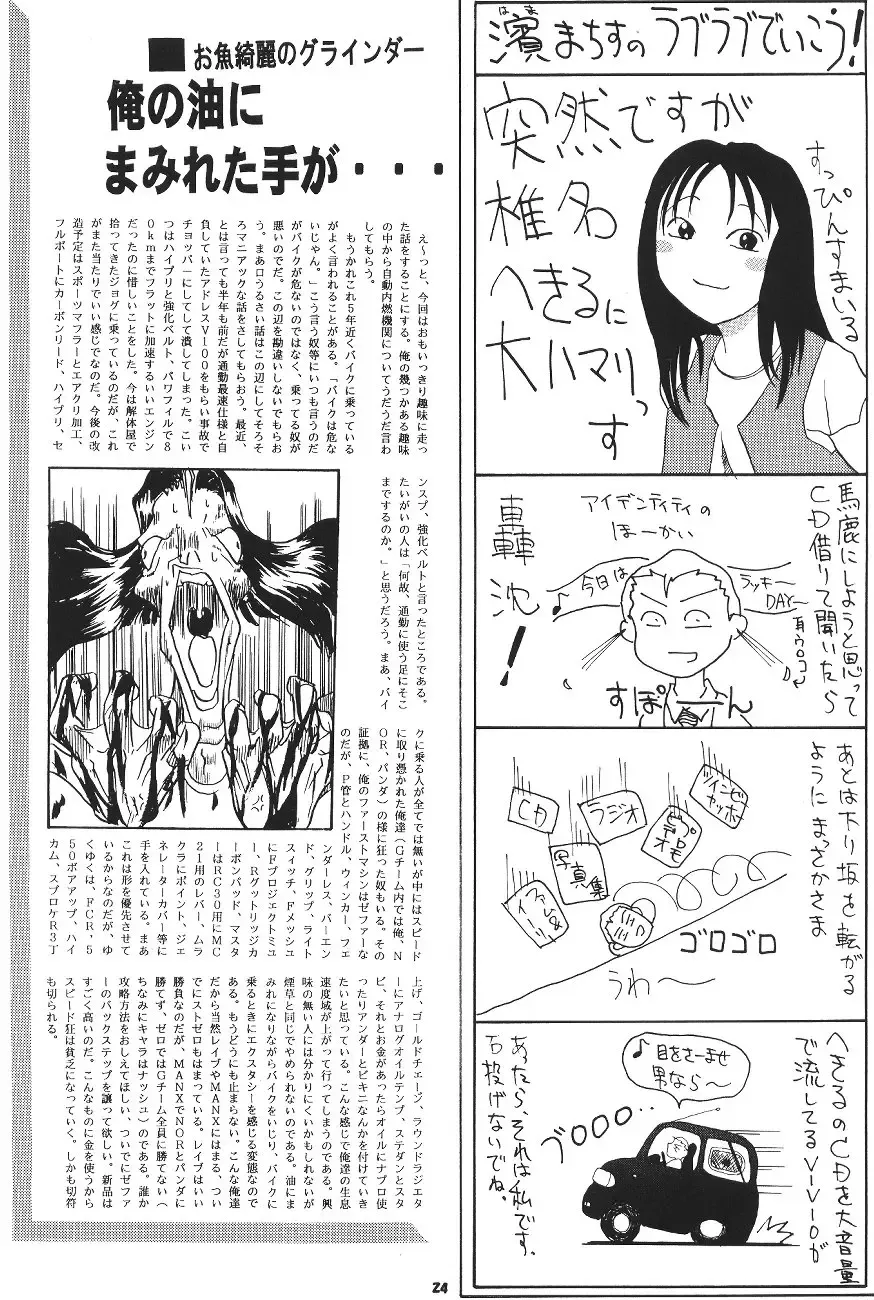 濱まちすのラブラブでいこう!
はま
突然ですが
椎名
へきるに
大ハマりっす
すっぴんすまいる
馬鹿にしようと思って
CD借りて聞いたら
アイデンティティの
ほーかい
轟
沈!
♪今日は
ラッキー
DAY〜
耳ウロコ
すぽーん
あとは下り坂を転がる
ように まっさかさま
ツインビー
ヤッホー
ラジオ
CD
ビデオ
写真集
イベント
ゴロゴロ
うわ〜
へきるのCDを大音量
で流してるVIVIOが
♪目をさーませ
男なら〜
ブOOO・・
あったら、それは私です。
石投げないでね。
■お魚綺麗のグラインダー
俺の油に
まみれた手が・・・
え〜っと、今回はおもいっきり趣味に走っ
た話をすることにする。俺の幾つかある趣味
の中から自動内燃機関についてうだうだ言わ
してもらう。
もうかれこれ5年近くバイクに乗っている
がよく言われることがある。「バイクは危な
いじゃん。」こう言う奴等にいつも言うのだ
がバイクが危ないのではなく、乗ってる奴が
悪いのだ。この辺を勘違いしないでもらお
う。まあ口うるさい話はこの辺にしてそろそ
ろマニアックな話をさしてもらおう。最近、
とは言っても半年も前だが通勤最速仕様と自
負していたアドレスV100をもらい事故で
チョッパーにしてして潰してしまった。こい
つはハイプリと強化ベルト、パワフィルで8
0kmまでフラットに加速するいいエンジン
だったのに惜しいことをした。今は解体屋で
拾ってきたジョグに乗っているのだが、これ
がまた当たりでいい感じでなのだ。今後の改
造予定はスポーツマフラーとエアクリ加工、
フルポートにカーボンリード、ハイプリ、セ
ンスプ、強化ベルトと言ったところである。
たいがいの人は「何故、通勤に使う足にそこ
までするのか。」と思うだろう。まあ、バイ
クに乗る人が全てでは無いが中にはスピード
に取り憑かれた俺達（Gチーム内では俺、N
OR、パンダ）の様に狂った奴もいる。その
証拠に、俺のファーストマシンはゼファーな
のだが、P管とハンドル、ウィンカー、フェ
ンダーレス、バーエン
ド、グリップ、ライト
スィッチ、Fメッシュ
にFプロジェクトミュ
ー、Rグットリッジカ
ーボンパッド、マスタ
ーはRC30用にMC
21用のレバー、ムラ
クラにポイント、ジェ
ネレーターカバー等に
手を入れている。まあ
これは形を優先させて
いるからなのだが、ゆ
くゆくは、FCR、5
50ボアアップ、ハイ
カム、スプロケR3丁
上げ、ゴールドチェーン、ラウンドラジエタ
ーにアナログオイルテンプ、ステダンとスタ
ビ、それとお金があったらオイルにナプロ使
ったりアンダーとビキニなんかを付けていき
たいと思っている。こんな感じで俺達の生息
速度域が上がって行ってしまうのである。興
味の無い人には分かりにくいかもしれないが
煙草と同じでやめられないのである。油にま
みれになりながらバイクをいじり、バイクに
乗るときにエクスタシーを感じる変態なので
ある。もうどうにも止まらない。こんな俺達
だから当然レイブやMANXにはまる、つい
でにストゼロもはまっている。レイブはいい
勝負なのだが、MANXでNORとパンダに
勝てず、ゼロではGチーム全員に勝てない（
ちなみにキャラはナッシュ）のである。誰か
攻略方法をおしえてほしい、ついでにゼファ
ーのバックステップを譲って欲しい。新品は
すごく高いのだ。こんなものに金を使うから
スピード狂は貧乏になっていく。しかも切符
も切られる。
24